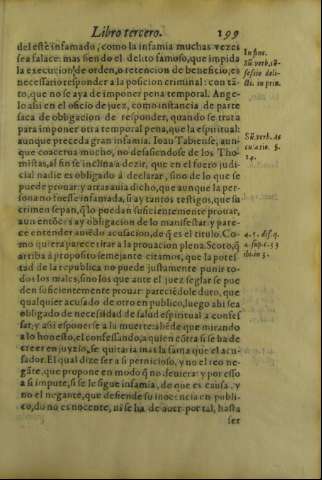 Libro tercero. 199
del esté infamado, como la infamia muchas vezes
sea falace: mas siendo el delito famoso, que impida
la execucion de orden, o retencion de beneficio, es
necessario responder a la posicion criminal: con tã-
to, que no se aya de imponer pena temporal. Ange-
lo assi en el oficio de juez, como instancia de parte
saca de obligacion de responder, quando se trata
para imponer otra temporal pena, que la espiritual:
aunque preceda gran infamia. Ioan Tabiense, aun-
que coacerua mucho, no desasiendose de los Tho-
mistas, al fin se inclina a dezir, que en el fuero judi-
cial nadie es obligado á declarar, sino de lo que se
puede prouar: y atras auia dicho, que aunque la per-
sona no fuesse infamada, si ay tantos testigos, que su
crimen sepan, q̃ lo puedan suficientemente prouar,
aun entõces ay obligacion de lo manifestar: y pare-
ce entender auiẽdo acusacion, de q̃ es el titulo. Co-
mo quiera parece tirar a la prouacion plena. Scoto, q̃
arriba á proposito semejante citamos, que la potes-
tad de la republica no puede justamente punir to-
dos los males, sino los que ante el juez seglar se pue-
den suficientemente prouar: pareciẽdole duro, que
qualquier acusado de otro en publico, luego ahi sea
obligado de necessidad de salud espiritual a confes
sar, y assi esponerse a su muerte: añede que mirando
a lo honesto, el confessando, a quien cõtra si se ha de
creer en juyzio, se quitaria mas la fama que el acu-
sador. El qual dize ser a si pernicioso, y no el reo ne-
gãte, que propone en modo q̃ no deuiera: y por esso
a si impute, si se le sigue infamia, de que es causa. y
no el negante, que defiende su inocencia en publi-
co, do no es nocente, ni se ha de auer por tal, hasta
ser
In fine.
Sũ verb. cõ-
fessio deli-
cti. in prin.
Sũ. verb. ac
cusatio. §.
24.
4. s. dist. q.
2. sup. c. 53
ibi. in 3.